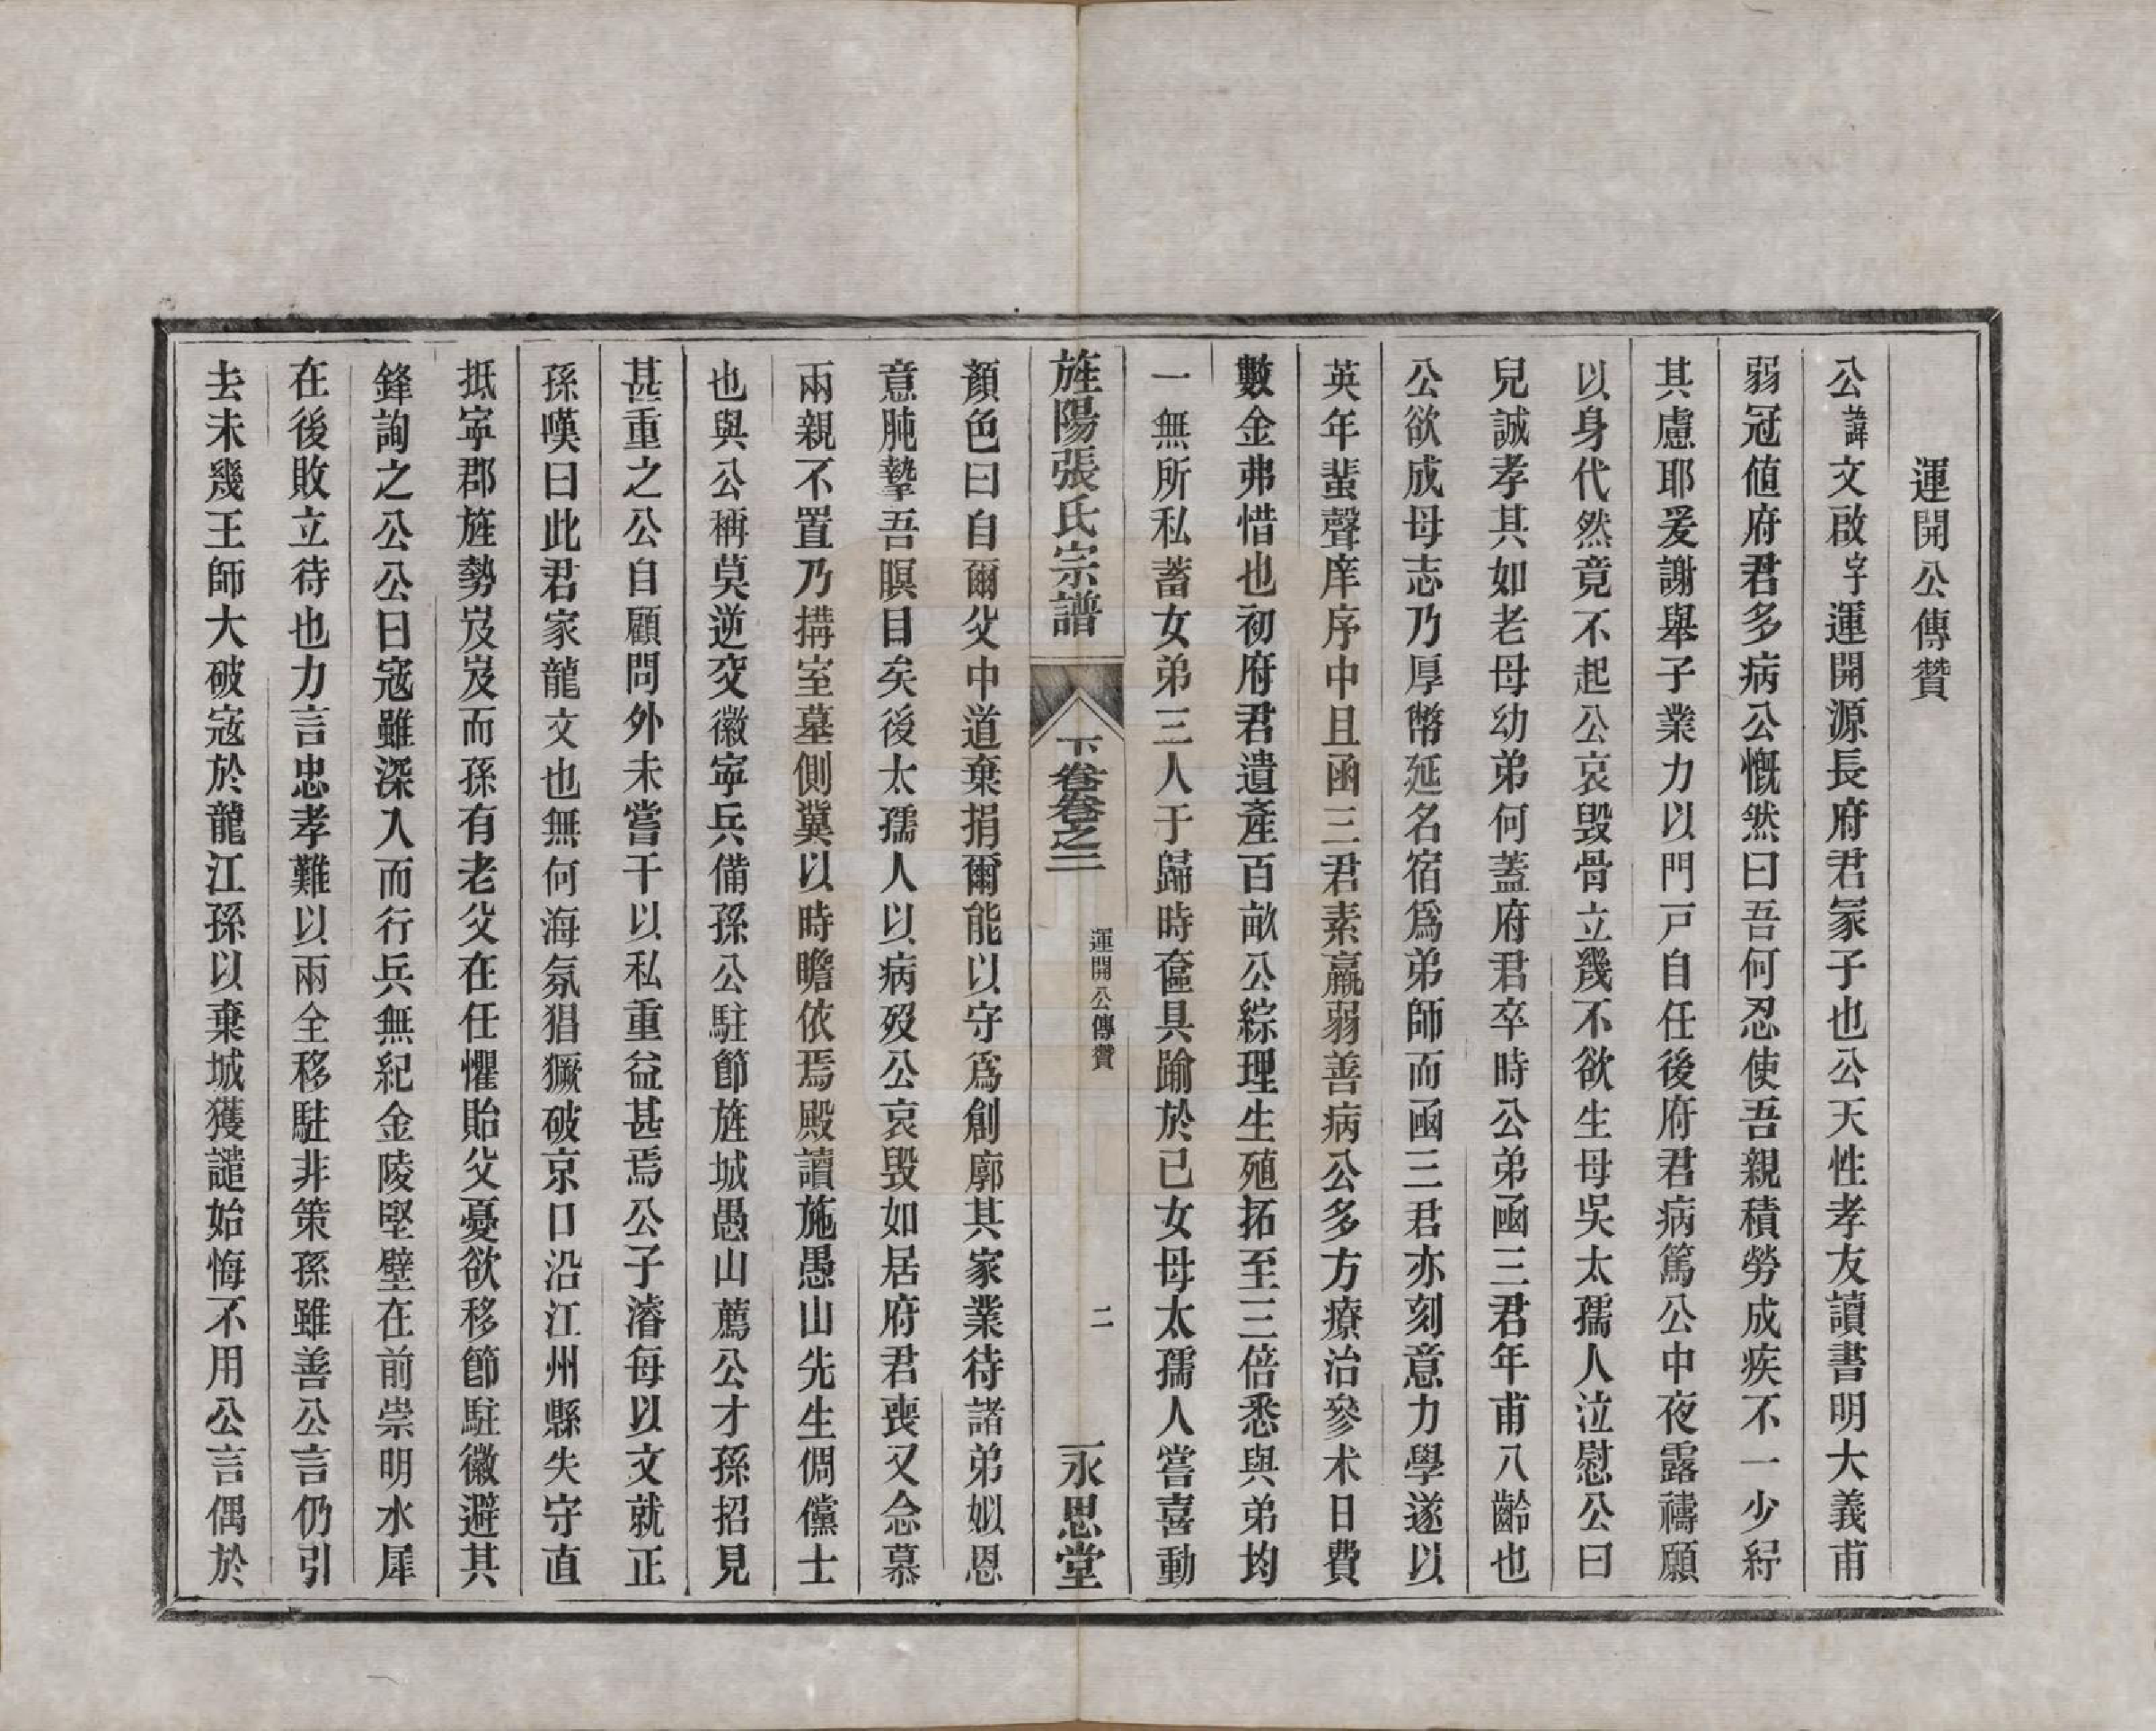 運開公傳贊
公諱文啟字運開源長府君冢子也公天性孝友讀書明大義甫
弱冠値府君多病公慨然曰吾何忍使吾親積勞成疾不一少紓
其慮耶爰謝舉子業力以門戸自任後府君病篤公中夜露禱願
以身代然竟不起公哀毀骨立幾不欲生母吳太孺人泣慰公曰
兒誠孝其如老母幼弟何蓋府君卒時公弟函三君年甫八齡也
公欲成母志乃厚幣延名宿爲弟師而函三君亦刻意力學遂以
英年蜚聲庠序中且函三君素羸弱善病公多方療治參朮日費
數金弗惜也初府君遺產百畝公綜理生殖拓至三倍悉與弟均
一無所私蓄女弟三人于歸時奩具踰於已女母太孺人嘗喜動
旌陽張氏宗譜
下卷卷之二
運開公傳贊
二
永思堂
顏色曰自爾父中道棄捐爾能以守爲創廓其家業待諸弟姒恩
意肫摯吾瞑目矣後太孺人以病歿公哀毀如居府君喪又念慕
兩親不置乃搆室墓側冀以時瞻依焉殿讀施愚山先生倜儻士
也與公稱莫逆交徽寧兵備孫公駐節旌城愚山薦公才孫招見
甚重之公自顧問外未嘗干以私重益甚焉公子濬每以文就正
孫嘆曰此君家龍文也無何海氛猖獗破京口沿江州縣失守直
抵寧郡旌勢岌岌而孫有老父在任懼貽父憂欲移節駐徽避其
鋒詢之公公曰寇雖深入而行兵無紀金陵堅壁在前崇明水犀
在後敗立待也力言忠孝難以兩全移駐非策孫雖善公言仍引
去未幾王師大破寇於龍江孫以棄城獲譴始悔不用公言偶於